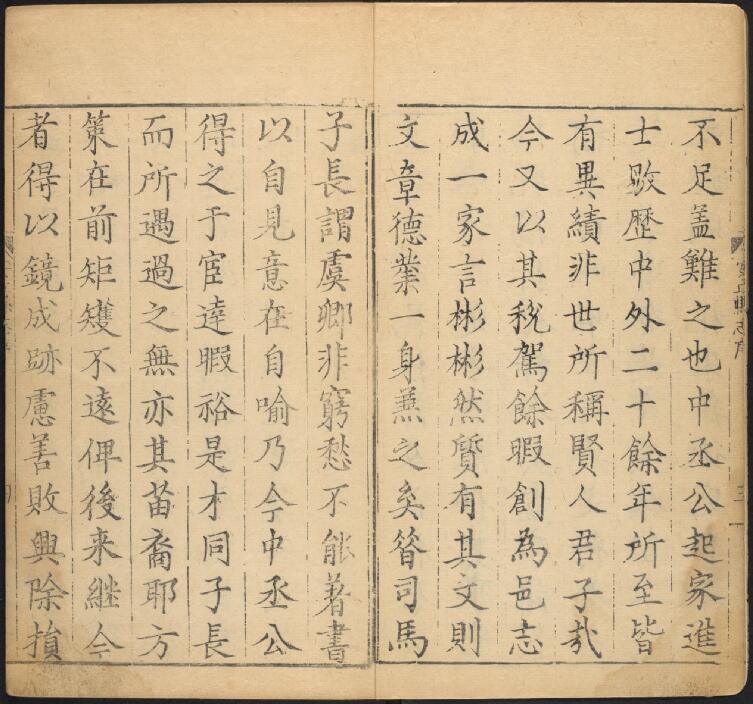 不足盖難之也中丞公起家進
士敭歷中外二十餘年所至皆
有異績非世所稱賢人君子㢤
今又以其稅駕餘暇創為邑志
成一家言彬彬然質有其文則
文章德業一身兼之矣昝司馬
子長謂虞卿非窮愁不能著書
以自見意在自喻乃今中丞公
得之于宦達暇裕是才同子長
而所遇過之無亦其苗裔耶方
策在前矩矱不遠俾後来継今
者得以鏡成跡慮善敗興除損